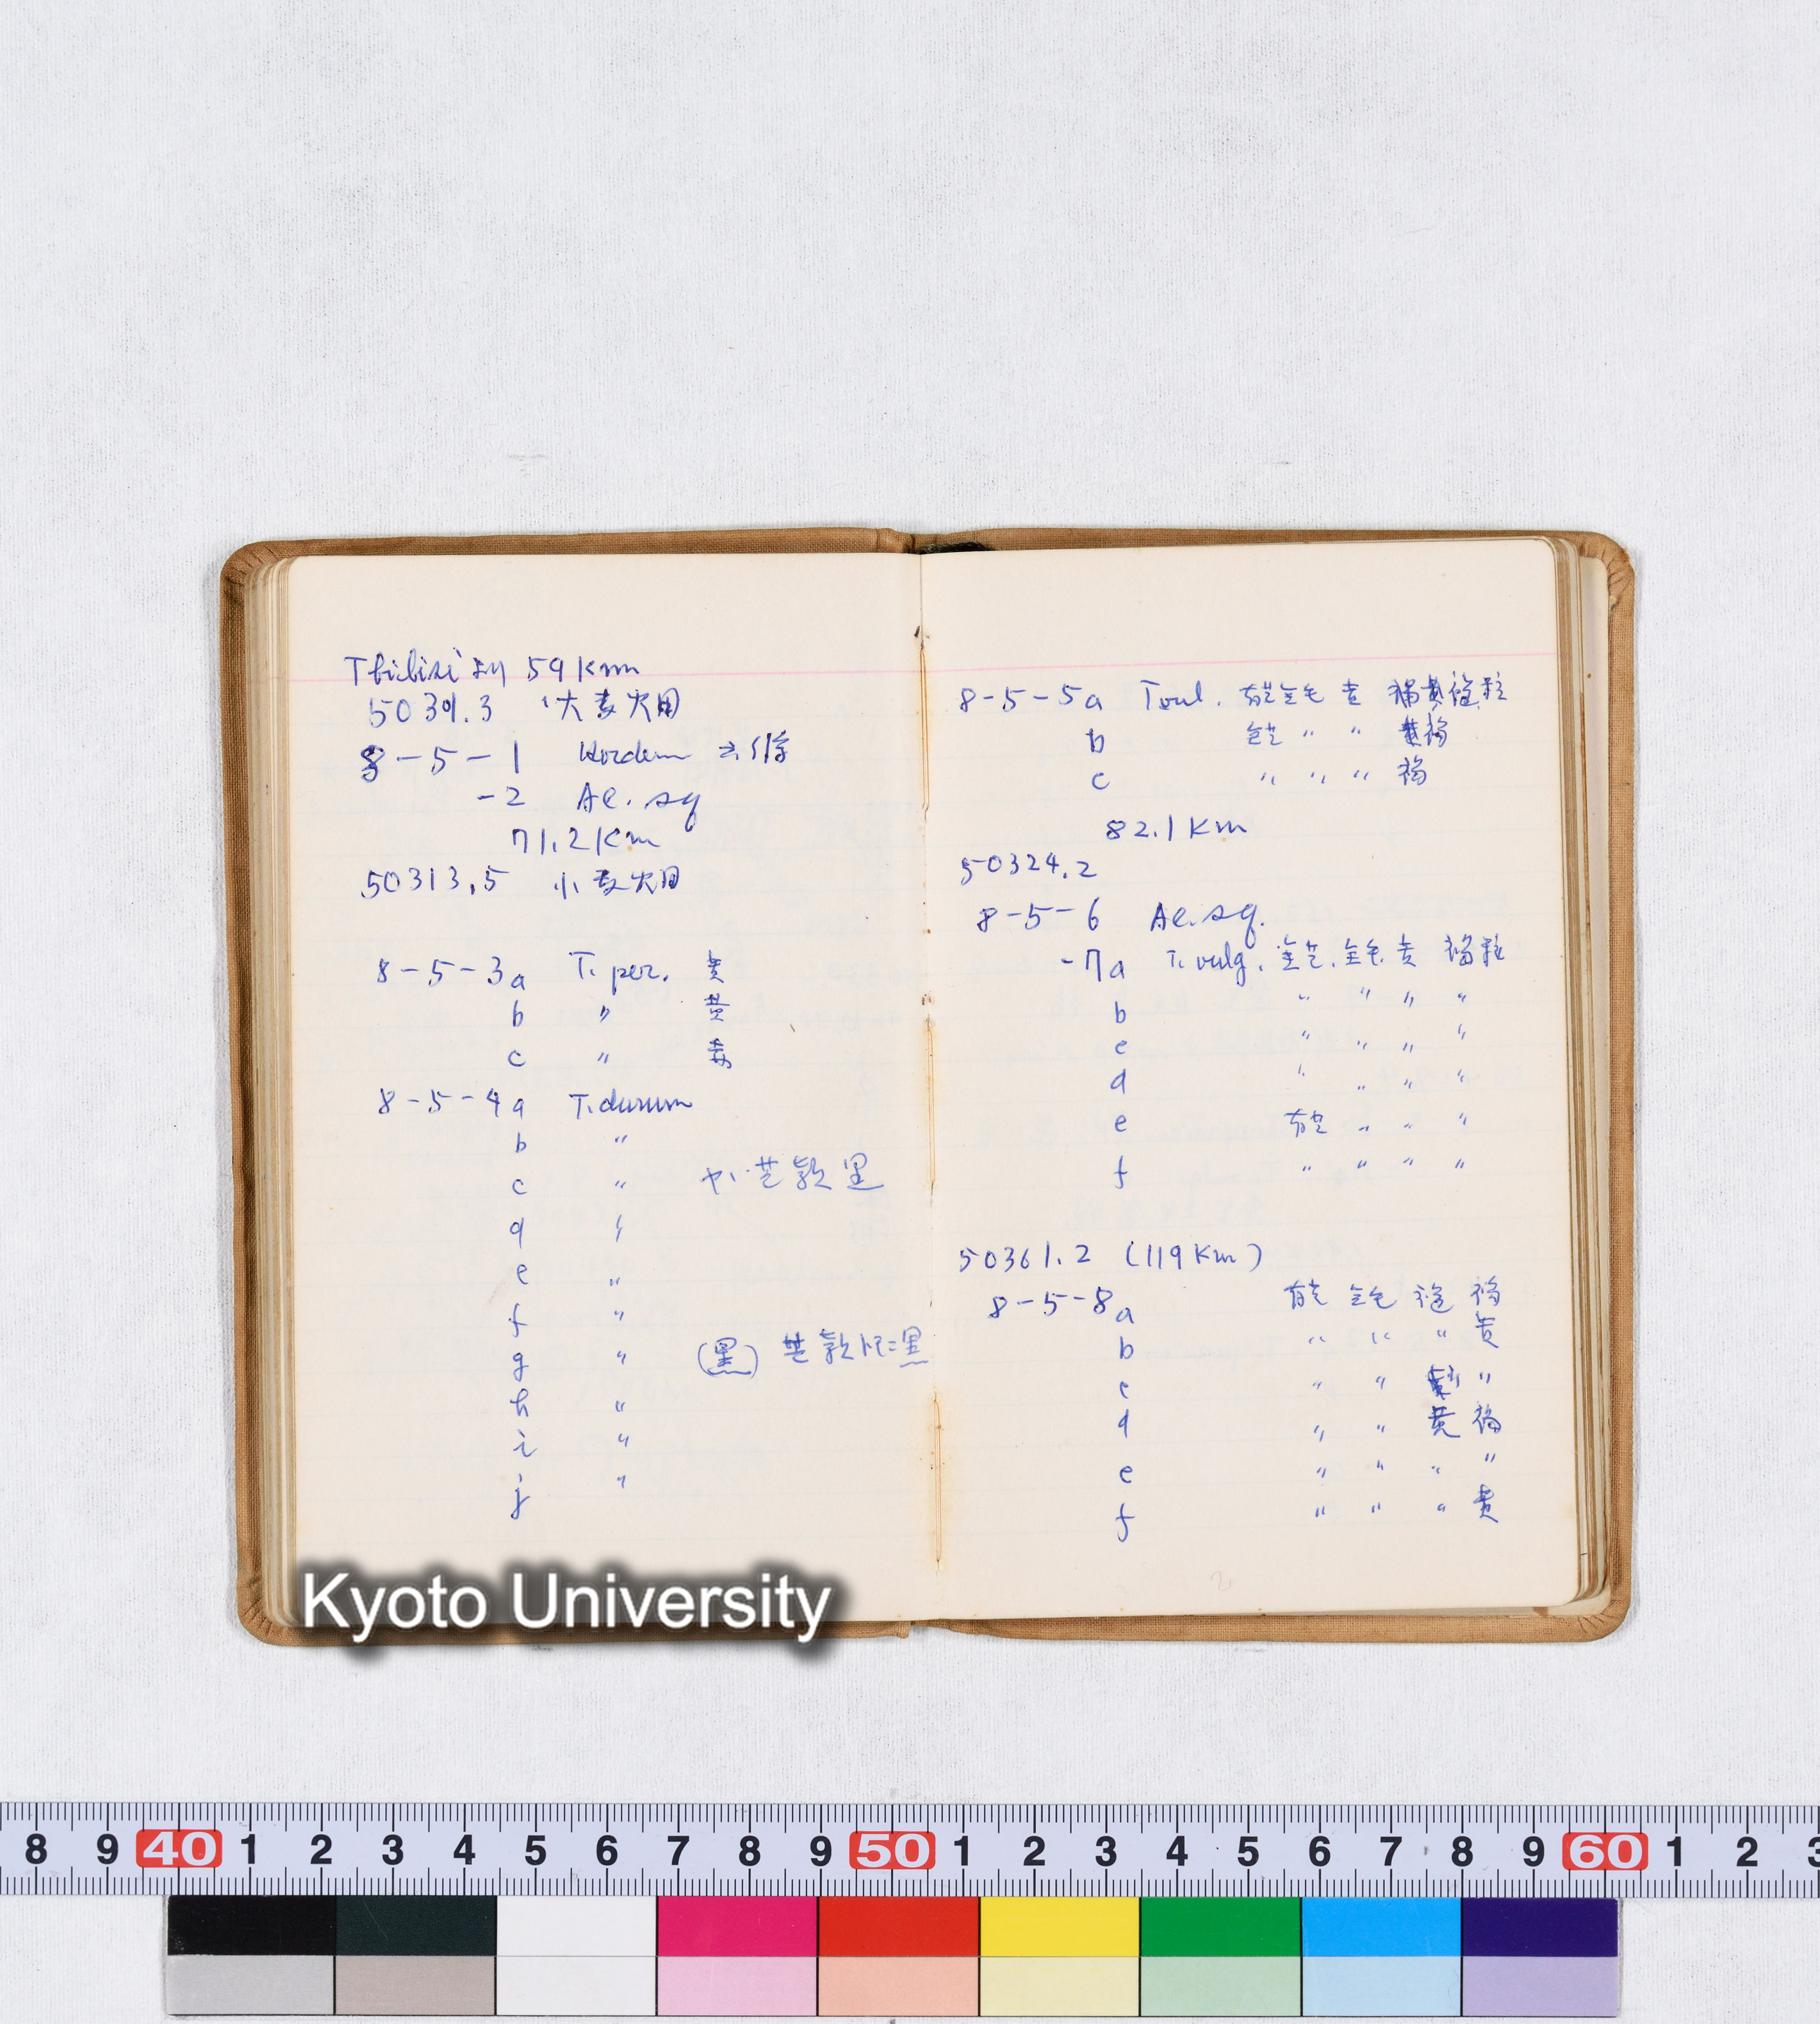 Tbilisiより 59Km
5039.3 大麦穴田
8-5-1 Hordeum 二條
-2 Ae. sq
71.2Km
50313.5 小麦穴田
8-5-3a T. per. 黄
b 〃 黄
c 〃
8-5-4a T. durum
b 〃
c 〃 芒穎黒
d 〃
e 〃
f 〃
g 〃 (黒) 芒穎 黒
h 〃
i 〃
j 〃
8-5-5a T. vul. 有芒 無毛 黄 褐粒
b 無芒 〃 〃 黄褐
c 〃 〃 〃 褐
82.1Km
50324.2
8-5-6 Ae. sq.
-7a T. vulg. 無芒. 無毛. 黄 褐粒
b 〃 〃 〃 〃
c 〃 〃 〃 〃
d 〃 〃 〃 〃
e 有芒 〃 〃 〃
f 〃 〃 〃 〃
50361.2 (119Km)
8-5-8a 有芒 無毛 褐
b 〃 〃 〃 黄
c 〃 〃 〃
d 〃 〃 黄 褐
e 〃 〃 〃 〃
f 〃 〃 〃 黄
Kyoto University
8 9 40 1 2 3 4 5 6 7 8 9 50 1 2 3 4 5 6 7 8 9 60 1 2 3